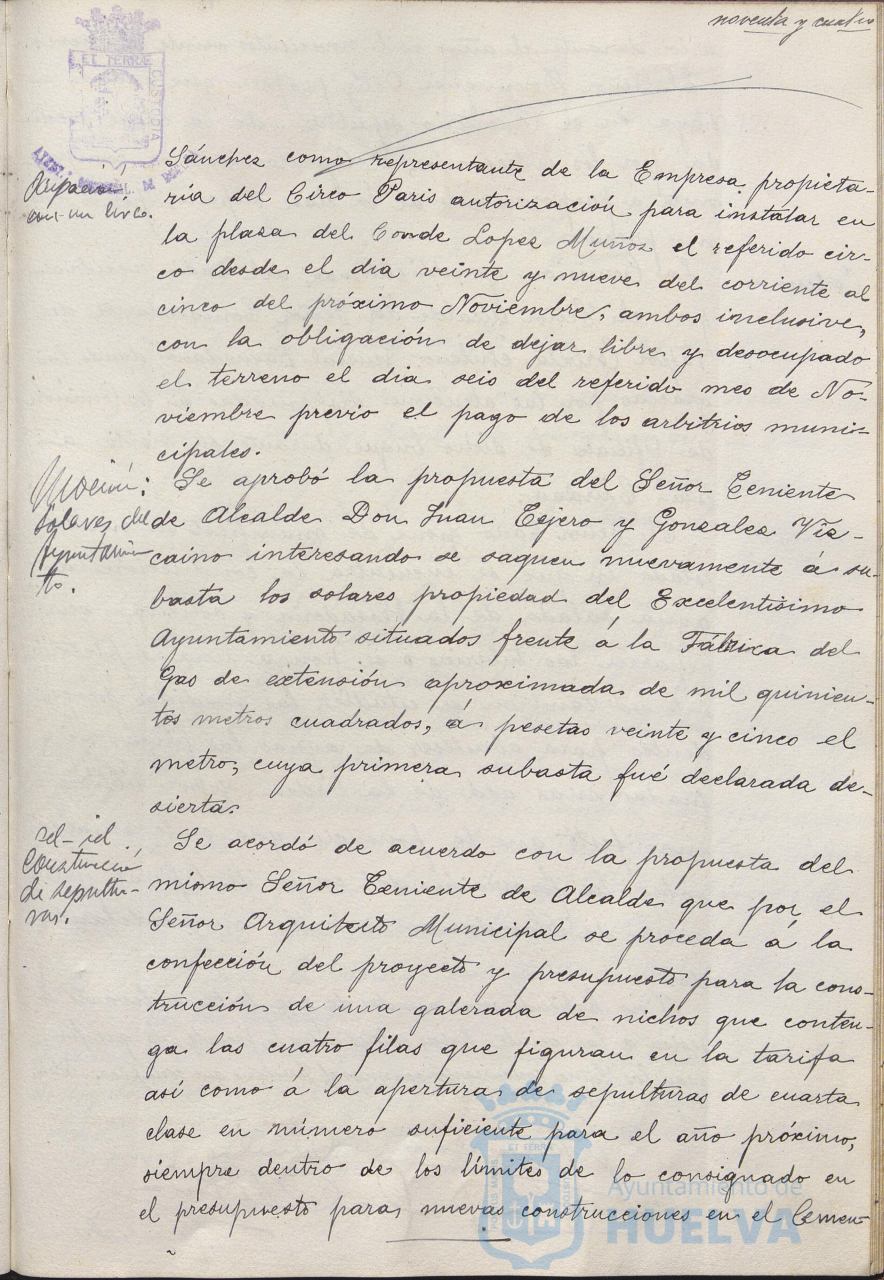 noventa y cuatro
ET TERRAE
CUSTODIA
Ocupación
con un Circo.
Sánchez como representante de la Empresa propieta-
ria del Circo Paris autorización para instalar en
la plaza del Conde Lopez Muñoz el referido cir-
co desde el dia veinte y nueve del corriente al
cinco del próximo Noviembre, ambos inclusive,
con la obligación de dejar libre y desocupado
el terreno el dia seis del referido mes de No-
viembre previo el pago de los arbitrios muni-
cipales.
Moción:
Solares del
Ayuntamien-
to.
Se aprobó la propuesta del Señor Teniente
de Alcalde Don Juan Tejero y Gonzalez Viz-
caino interesando se saquen nuevamente á su-
basta los solares propiedad del Excelentisimo
Ayuntamiento situados frente á la Fábrica del
Gas de extensión aproximada de mil quinien-
tos metros cuadrados, á pesetas veinte y cinco el
metro, cuya primera subasta fué declarada de-
sierta.
id - id.
Construcción
de sepultu-
ras.
Se acordó de acuerdo con la propuesta del
mismo Señor Teniente de Alcalde que por el
Señor Arquitecto Municipal se proceda á la
confección del proyecto y presupuesto para la cons-
trucción de una galerada de nichos que conten-
ga las cuatro filas que figuran en la tarifa
así como á la apertura de sepulturas de cuarta
clase en número suficiente para el año próximo,
siempre dentro de los límites de lo consignado en
el presupuesto para nuevas construcciones en el Cemen-
Ayuntamiento de
HUELVA